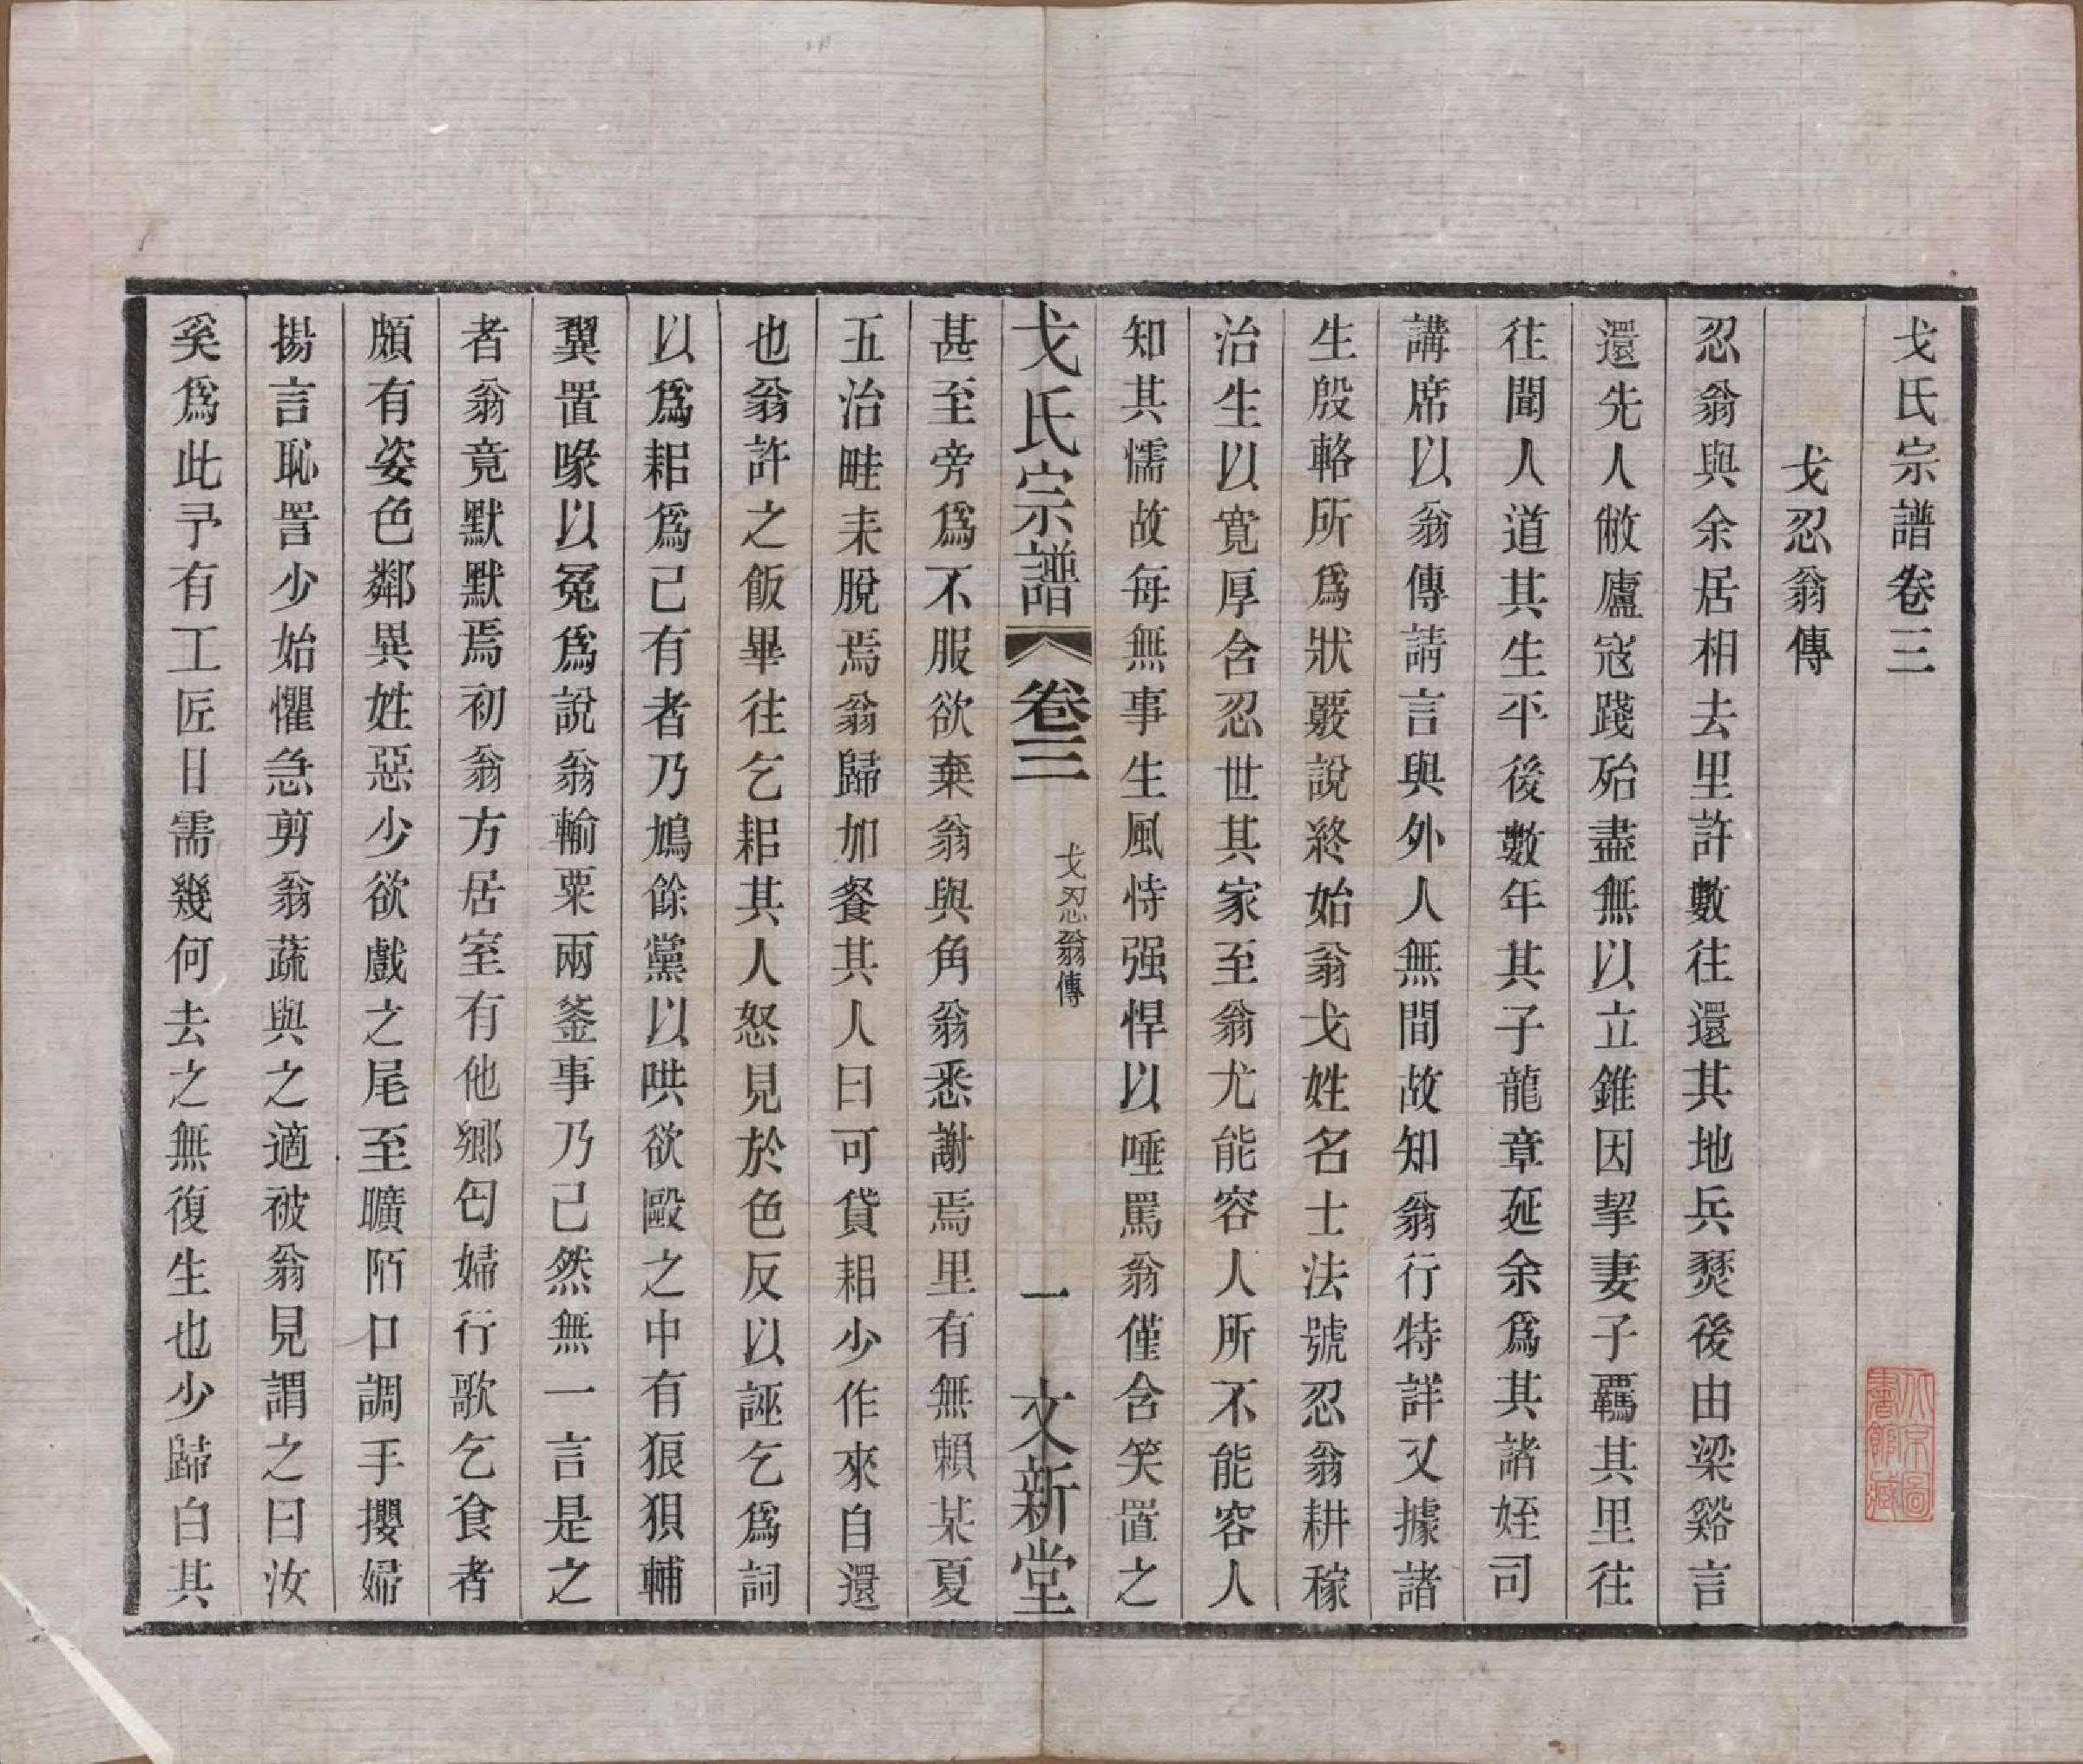 戈氏宗譜卷三
戈忍翁傳
忍翁與余居相去里許數往還其地兵燹後由梁谿言
還先人敝廬寇踐殆盡無以立錐因挈妻子羈其里往
往聞人道其生平後數年其子龍章延余爲其諸姪司
講席以翁傳請言與外人無間故知翁行特詳又據諸
生殷輅所爲狀覈說終始翁戈姓名士法號忍翁耕稼
治生以寬厚含忍世其家至翁尤能容人所不能容人
知其懦故每無事生風恃强悍以唾罵翁僅含笑置之
戈氏宗譜 卷三 戈忍翁傳 一 文新堂
甚至旁爲不服欲棄翁與角翁悉謝焉里有無賴某夏
五治畦耒脫焉翁歸加餐其人曰可貸耜少作來自還
也翁許之飯畢往乞耜其人怒見於色反以誣乞爲詞
以爲耜爲己有者乃鳩餘黨以哄欲毆之中有狼狽輔
翼置喙以冤爲說翁輸粟兩釜事乃己然無一言是之
者翁竟默默焉初翁方居室有他鄉匄婦行歌乞食者
頗有姿色鄰異姓惡少欲戲之尾至曠陌口調手攖婦
揚言恥詈少始懼急剪翁蔬與之適被翁見謂之曰汝
奚爲此予有工匠日需幾何去之無復生也少歸白其
北京圖書館藏